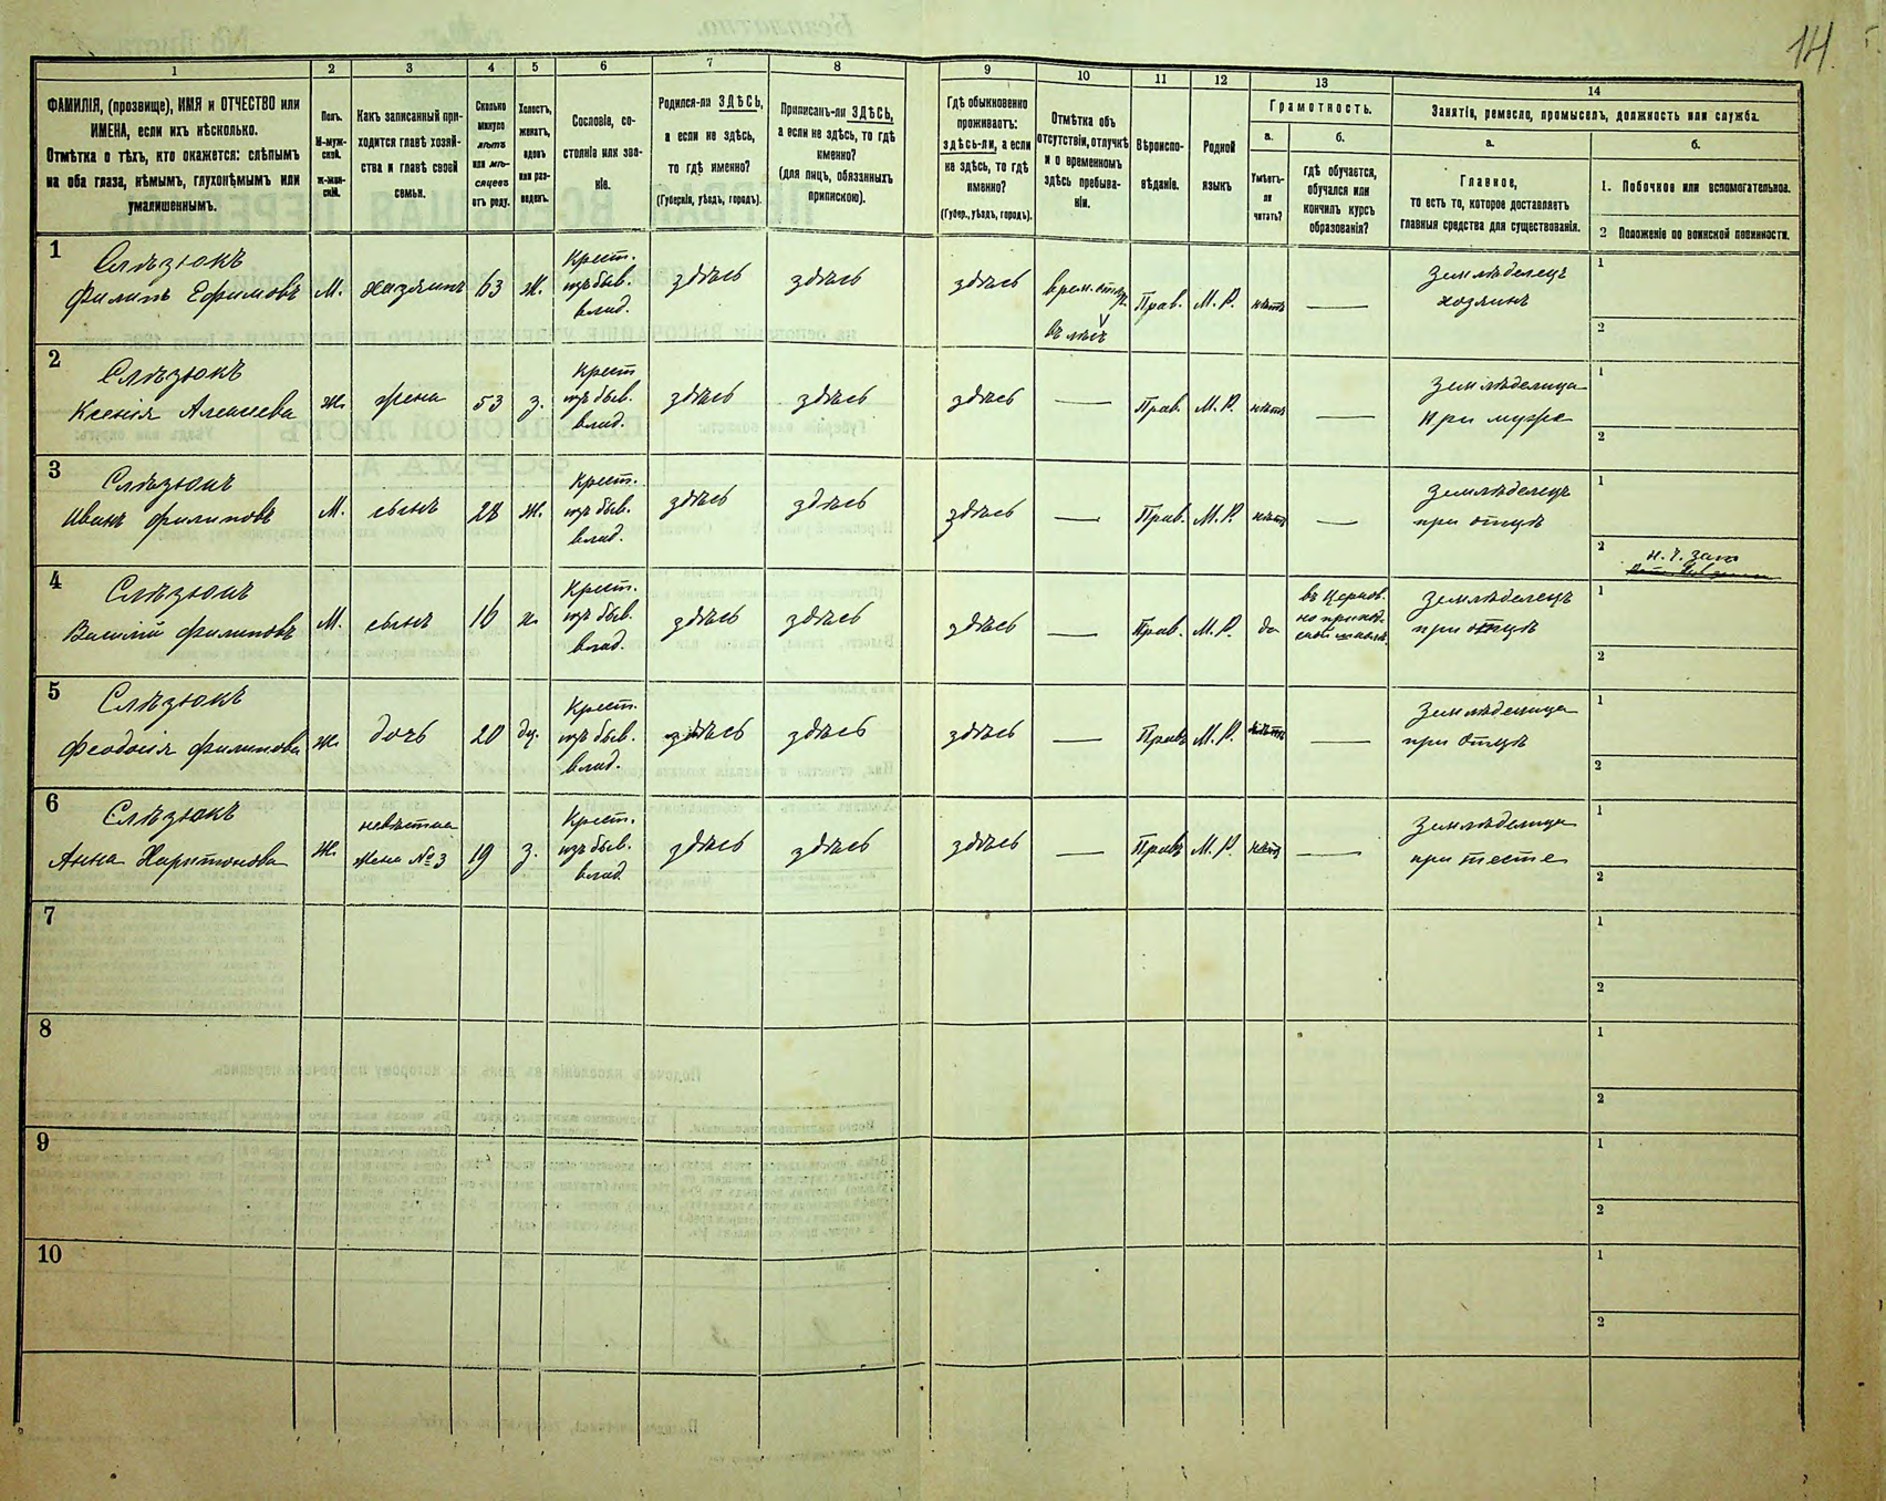 14.
1 2 3 4 5 6 7 8 9 10 11 12 13 14
ФАМИЛІЯ, (прозвище), ИМЯ и ОТЧЕСТВО или
ИМЕНА, если ихъ нѣсколько.
Отмѣтка о тѣхъ, кто окажется: слѣпымъ
на оба глаза, нѣмымъ, глухонѣмымъ или
умалишеннымъ.
Полъ.
М-муж-
ской.
Ж-жен-
скій.
Какъ записанный при-
ходится главѣ хозяй-
ства и главѣ своей
семьи.
Сколько
минуло
лѣтъ
или мѣ-
сяцевъ
отъ роду.
Холостъ,
женатъ,
вдовъ
или раз-
веденъ.
Сословіе, со-
стояніе или зва-
ніе.
Родился-ли ЗДѢСЬ,
а если не здѣсь,
то гдѣ именно?
(Губернія, уѣздъ, городъ).
Приписанъ-ли ЗДѢСЬ,
а если не здѣсь, то гдѣ
именно?
(для лицъ, обязанныхъ
припискою).
Гдѣ обыкновенно
проживаетъ:
здѣсь-ли, а если
не здѣсь, то гдѣ
именно?
(Губер., уѣздъ, городъ).
Отмѣтка объ
отсутствіи, отлучкѣ
и о временномъ
здѣсь пребыва-
ніи.
Вѣроиспо-
вѣданіе.
Родной
языкъ.
Грамотность.
а.
Умѣетъ-
ли
читать?
б.
гдѣ обучается,
обучался или
кончилъ курсъ
образованія?
Занятіе, ремесло, промыселъ, должность или служба.
а.
Главное,
то есть то, которое доставляетъ
главныя средства для существованія.
б.
1. Побочное или вспомогательное.
2 Положеніе по воинской повинности.
1
Слѣзюкъ
Филипъ Ефимовъ
М.
хазяинъ
63
ж.
Крест.
изъ быв.
влад.
здѣсь
здѣсь
здѣсь
Прав.
М. Р.
нѣтъ
—
Земледѣлецъ
хозяинъ
1
2
2
Слѣзюкъ
Ксенія Алексеева
ж.
жена
53
з.
Крест
изъ быв.
влад.
здѣсь
здѣсь
здѣсь
—
Прав.
М. Р.
нѣтъ
—
при мужѣ
1
2
3
Слѣзюкъ
Иванъ Филиповъ
М.
сынъ
28
ж.
Крест.
изъ быв.
влад.
здѣсь
здѣсь
здѣсь
—
Прав.
М. Р.
нѣтъ
—
при отцѣ
1
2
4
Слѣзюкъ
Василій Филиповъ
М.
сынъ
16
х.
Крест.
изъ быв.
влад.
здѣсь
здѣсь
здѣсь
—
Прав.
М. Р.
да
въ Церков.
но приход-
ской школѣ
при отцѣ
1
2
5
Слѣзюкъ
Феодосія Филипова
ж.
дочь
20
дѣ.
Крест.
изъ быв.
влад.
здѣсь
здѣсь
здѣсь
—
Прав.
М. Р.
нѣтъ
—
при отцѣ
1
2
6
Слѣзюкъ
Анна Харитонова
ж.
невѣстка
жена №3
19
з.
Крест.
изъ быв.
влад.
здѣсь
здѣсь
здѣсь
—
Прав.
М. Р.
нѣтъ
—
при тесте
1
2
7
1
2
8
1
2
9
1
2
10
1
2